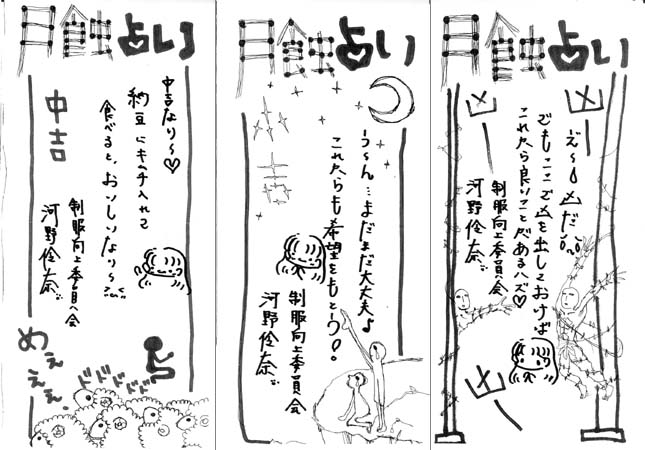 月蝕占い
中吉
中吉なり〜♡
納豆にキムチ入れて
食べると、おいしいなり〜
制服向上委員会
河野伶奈
めぇぇぇ
ドドドドド
月蝕占い
う〜ん…まだまだ大丈夫♪
これからも希望をもとう!
制服向上委員会
河野伶奈
月蝕占い
凶
凶
え〜凶だ
でもここで凶を出しておけば
これから良いことがあるハズ♡
制服向上委員会
河野伶奈
凶